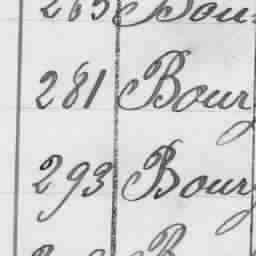 265 Bou
281 Bour
293 Bour